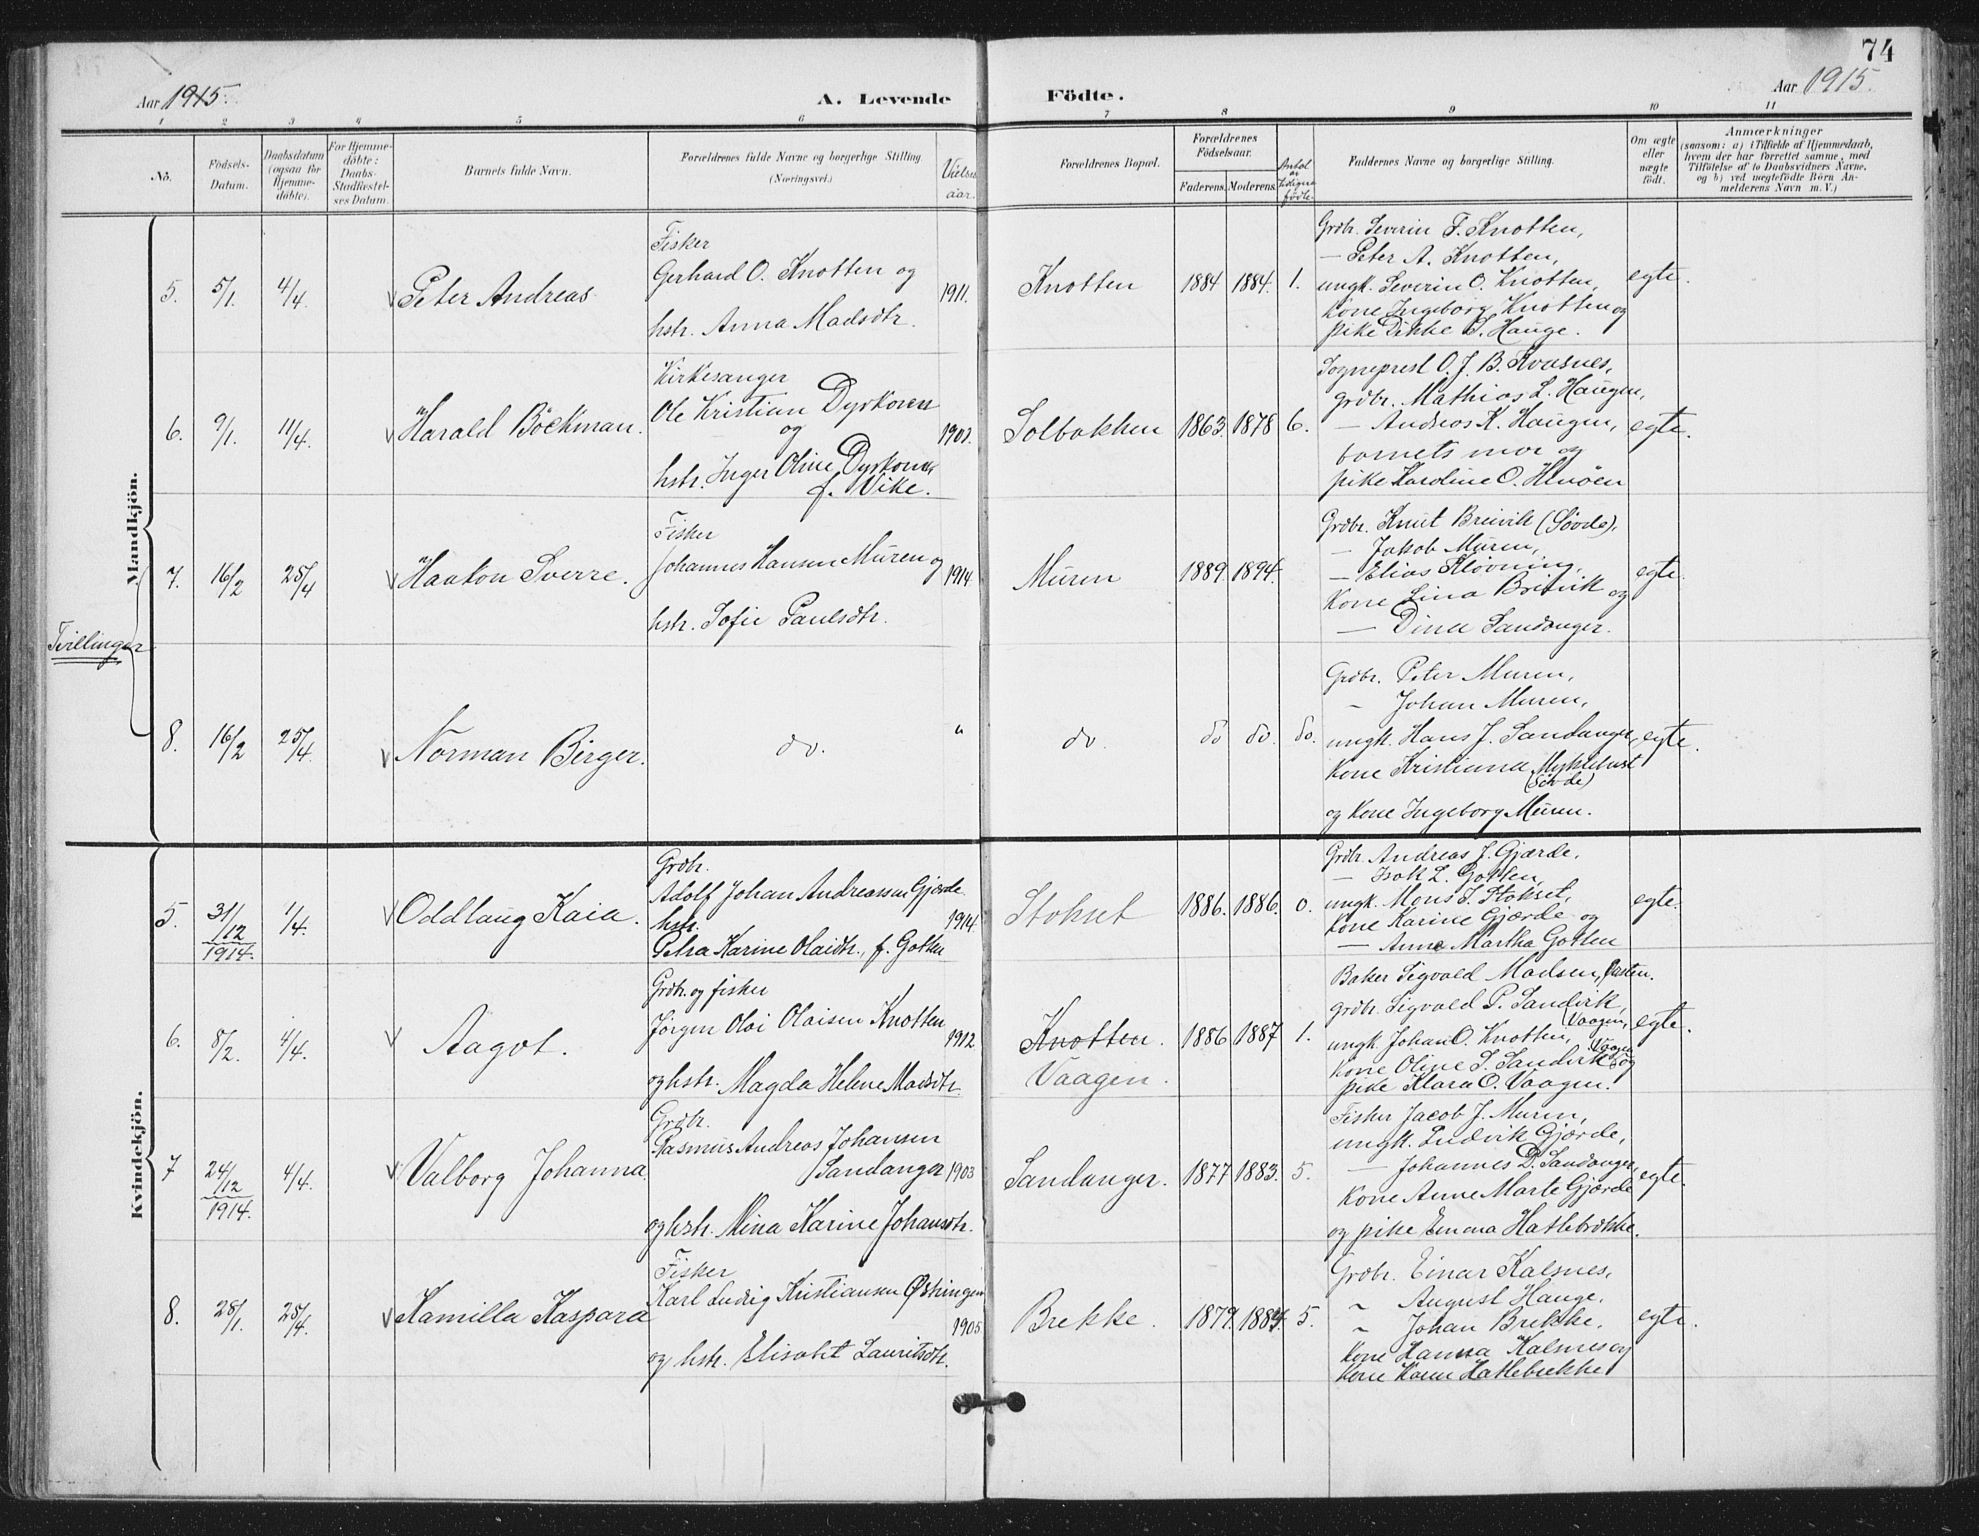 74
Aar 1915.
A. Levende
Födte.
Aar 1915.
1 2 3 4 5 6 7 8 9 10 11
No.
Födsels-
Datum.
Daabsdatum
(ogsaa for
Hjemme-
döbte).
For Hjemme-
döbte:
Daabs-
Stadfæstel-
ses Datum.
Barnets fulde Navn.
Forældrenes fulde Navne og borgerlige Stilling.
(Næringsvei.)
Vielses
aar.
Forældrenes Bopæl.
Forældrenes
Födselsaar.
Faderens. Moderens.
Antal
af
tidligere
födte
Faddernes Navne og borgerlige Stilling.
Om ægte
eller
uægte
födt.
Anmærkninger
(saasom: a) i Tilfælde af Hjemmedaab,
hvem der har forrettet samme, med
Tilföielse af to Daabsvidners Navne,
og b) ved uægtefödte Börn An-
melderens Navn m. V.)
Mandkjön.
Tvillinger
5. 5/1. 4/4. Peter Andreas.
Fisker
Gerhard O. Knotten og
hstr. Anna Madsdtr.
1911.
Knotten 1884 1884. 1.
Grdbr. Severin F. Knotten,
— Peter A. Knotten,
ungk. Severin O. Knotten,
kone Ingeborg Knotten og
pike Rikke S. Hauge.
egte.
6. 9/1. 11/4. Harald Böckman.
Kirkesanger
Ole Kristian Dyrkoren
og
hstr. Inger Oline Dyrkoren
f. Vike.
1902.
Solbakken 1863. 1878 6.
Sogneprest O. J. B. Kvasnes,
grdbr. Mathias L. Haugen,
— Andreas K. Haugen,
barnets mor og
pike Karoline O. Henöen
egte.
7. 16/2 25/4 Haakon Sverre.
Fisker
Johannes Hansen Muren og
hstr. Sofie Paulsdtr.
1914.
Muren 1889. 1894.
Grdbr. Knut Breivik (Søvde),
— Jakob Muren,
— Elias Kløvning,
Kone Lina Breivik og
— Dina Sandanger.
egte.
8. 16/2 25/4. Norman Birger.
do.
"
do. do do. do.
Grdbr. Peter Muren,
— Johan Muren,
ungk. Hans J. Sandanger,
kone Kristianna Myklebust
(Søvde)
og kone Ingeborg Muren.
egte.
Kvindekjön.
5. 31/12 1914. 1/4. Oddlaug Kaia.
Grdbr.
Adolf Johan Andreassen Gjærde
hstr.
Petra Karine Olaidtr., f. Gotten
1914.
Stokset 1886. 1886. 0.
Grdbr. Andreas J. Gjærde,
— Isak L. Gotten,
ungk. Mons S. Stokset,
kone Karine Gjærde og
— Anne Martha Gotten
egte.
6. 8/2. 4/4. Aagot.
Grdbr. og fisker
Jørgen Olai Olaisen Knotten
og hstr. Magda Helene Madsdtr.
1912.
Knotten.
Vaagen.
1886 1887 1.
Baker Sigvald Madsen,
grdbr. Sigvald P. Sandvik,
Vaagen,
ungk. Johan O. Knotten,
Vaagen
kone Oline S. Sandvik og
pike Klara O. Vaagen.
egte.
7 24/12 1914. 4/4. Valborg Johanna.
Grdbr.
Rasmus Andreas Johansen
Sandanger
og hstr. Mina Karine Johansdtr.
1903
Sandanger. 1877 1883. 5.
Fisker Jacob J. Muren,
ungk. Ludvik Gjærde,
— Johannes D. Sandanger,
Kone Anne Marte Gjærde
og pike Emma Hatlebrekke.
egte.
8. 28/1. 25/4. Kamilla Kaspara
Fisker
Karl Ludvig Kristiansen Østringen
og hstr. Elisabet Lauritsdtr.
1905
Brekke. 1879. 1884. 5.
Grdbr. Einar Kalsnes,
" August Hauge.
" Johan Brekke.
Kone Hanna Kalsnes og
kone Karen Hatlebrekke
egte.